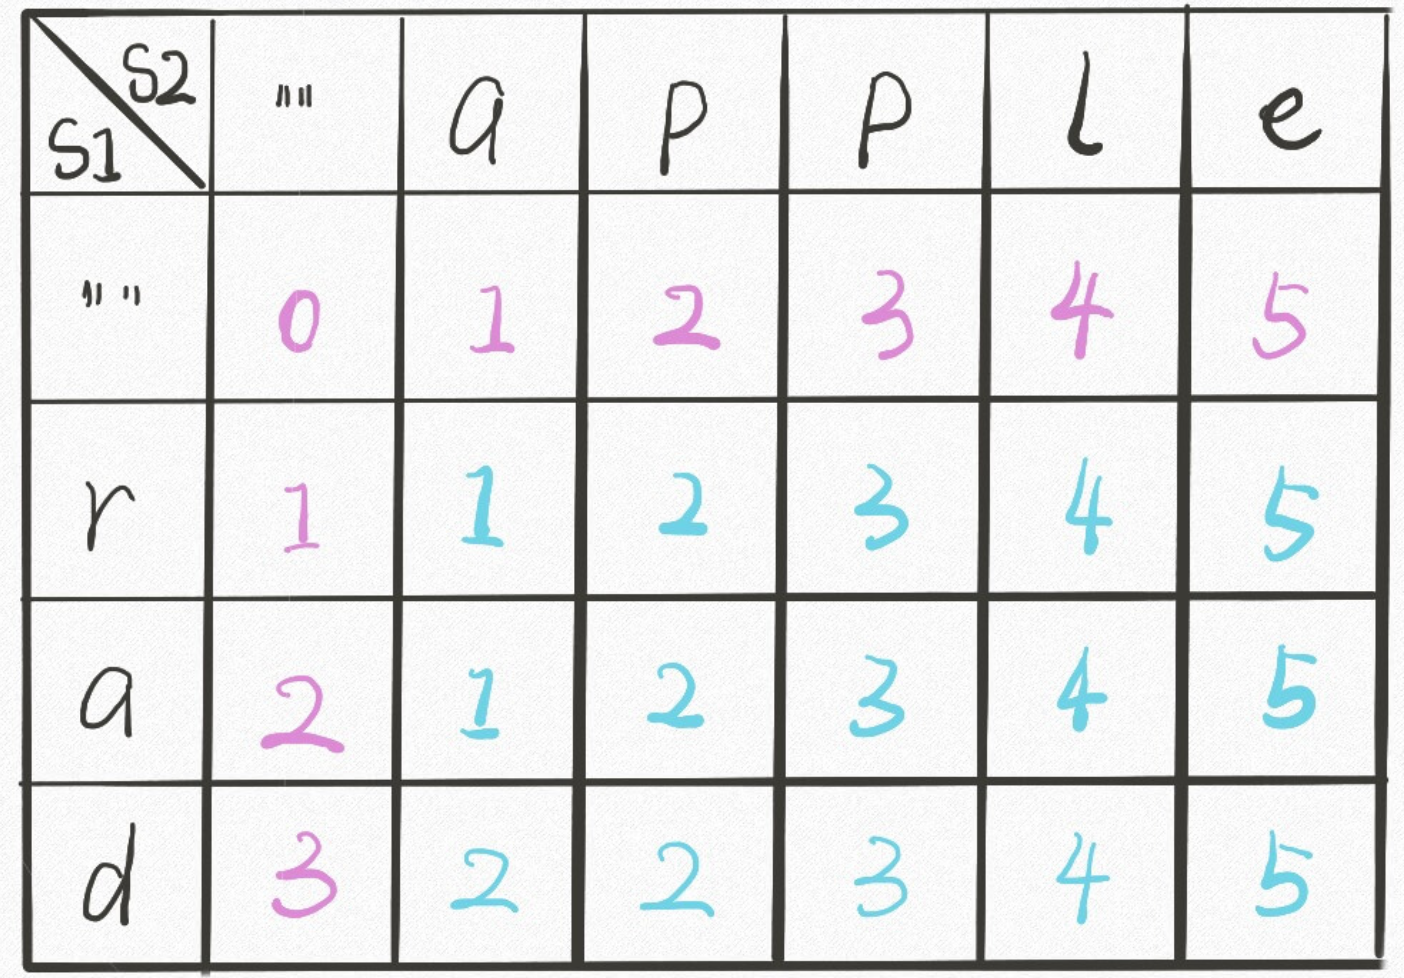 S2
S1 "" a p p l e
"" 0 1 2 3 4 5
r 1 1 2 3 4 5
a 2 1 2 3 4 5
d 3 2 2 3 4 5